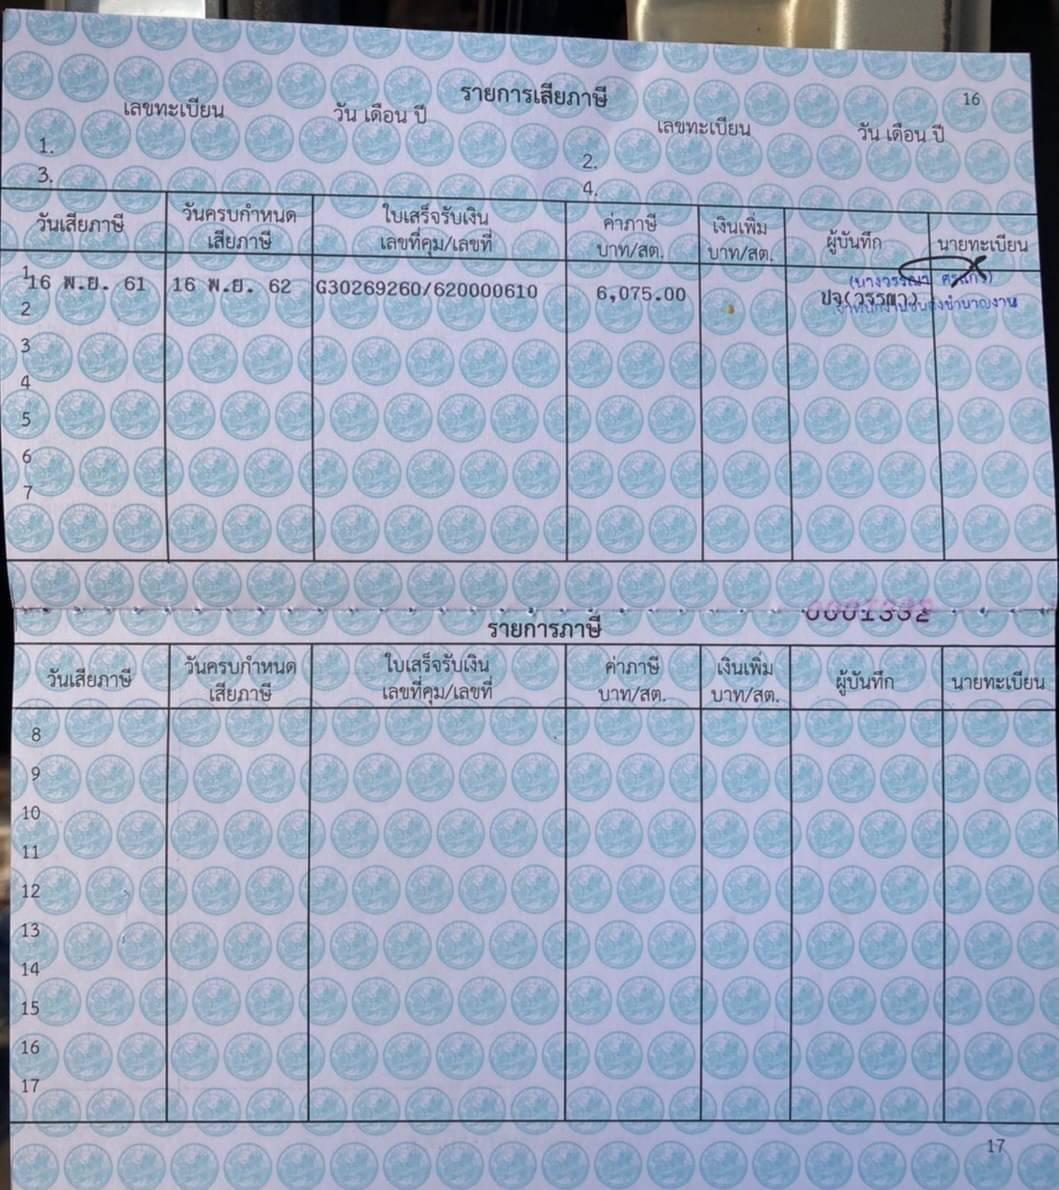 รายการเสียภาษี
16
เลขทะเบียน วัน เดือน ปี เลขทะเบียน วัน เดือน ปี
1. 2.
3. 4.
วันเสียภาษี วันครบกำหนดเสียภาษี ใบเสร็จรับเงิน เลขที่คุม/เลขที่ ค่าภาษี บาท/สต. เงินเพิ่ม บาท/สต. ผู้บันทึก นายทะเบียน
1 16 พ.ย. 61 16 พ.ย. 62 G30269260/620000610 6,075.00 ปจ(วรรณา)
2
3
4
5
6
7
0001332
รายการภาษี
วันเสียภาษี วันครบกำหนดเสียภาษี ใบเสร็จรับเงิน เลขที่คุม/เลขที่ ค่าภาษี บาท/สต. เงินเพิ่ม บาท/สต. ผู้บันทึก นายทะเบียน
8
9
10
11
12
13
14
15
16
17
17